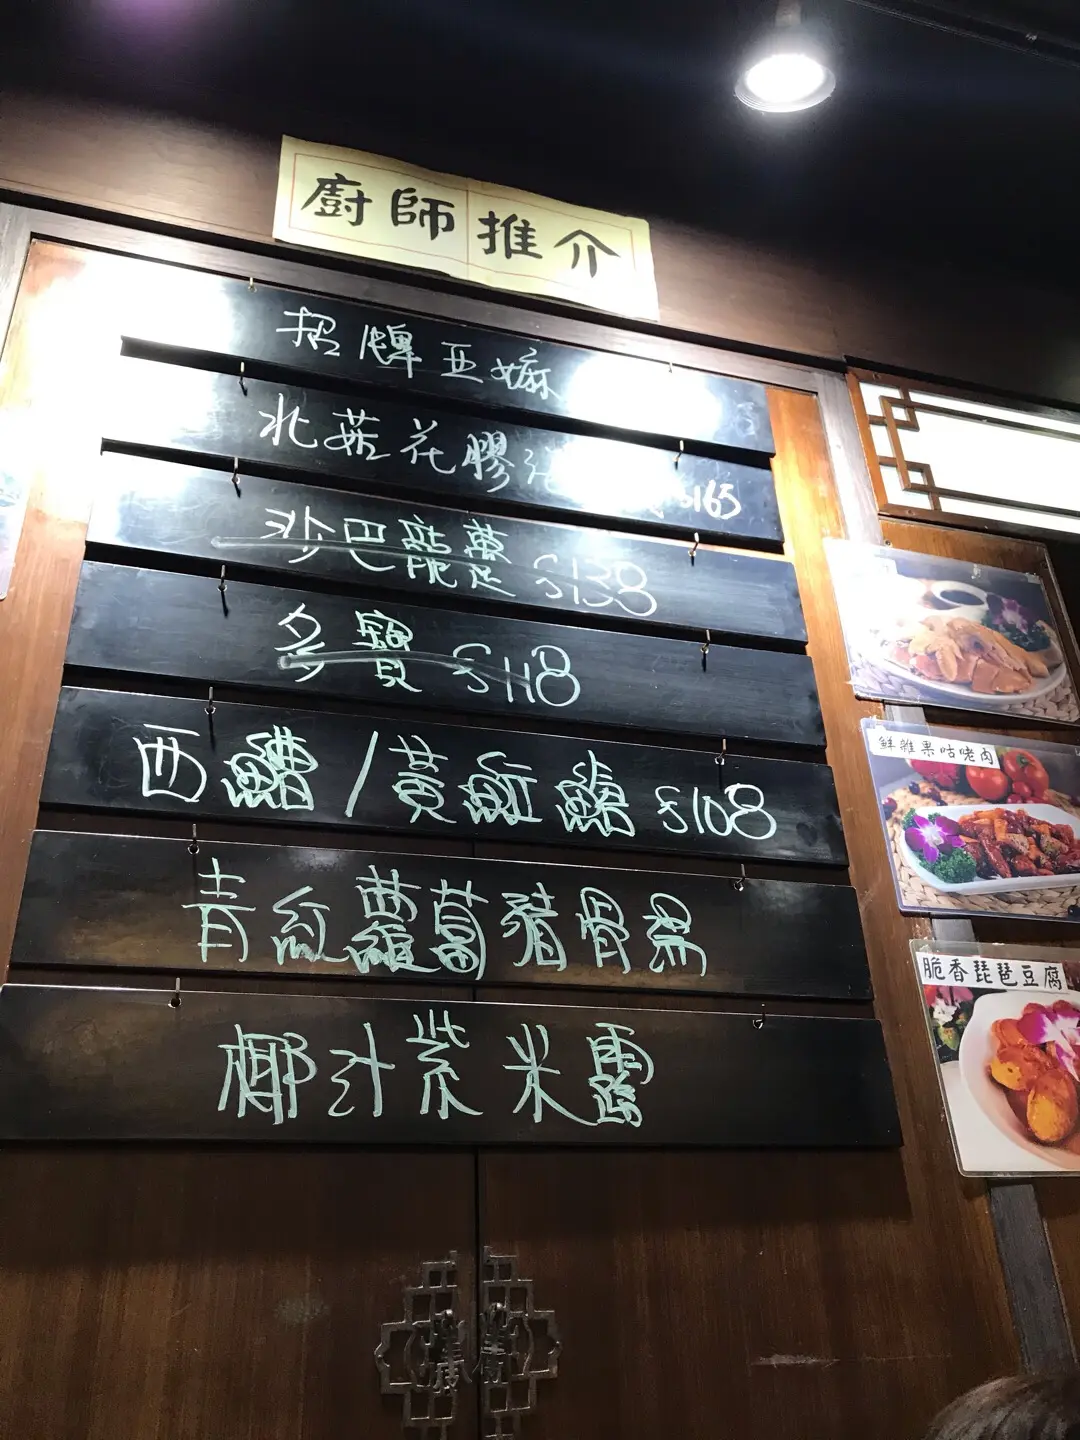 廚師推介
招牌亞嫲
北菇花膠 $165
沙巴龍躉 $138
多寶 $118
西鱛/黃魟鱔 $108
青紅蘿蔔豬骨湯
椰汁紫米露
鮮雜果咕咾肉
脆香琵琶豆腐